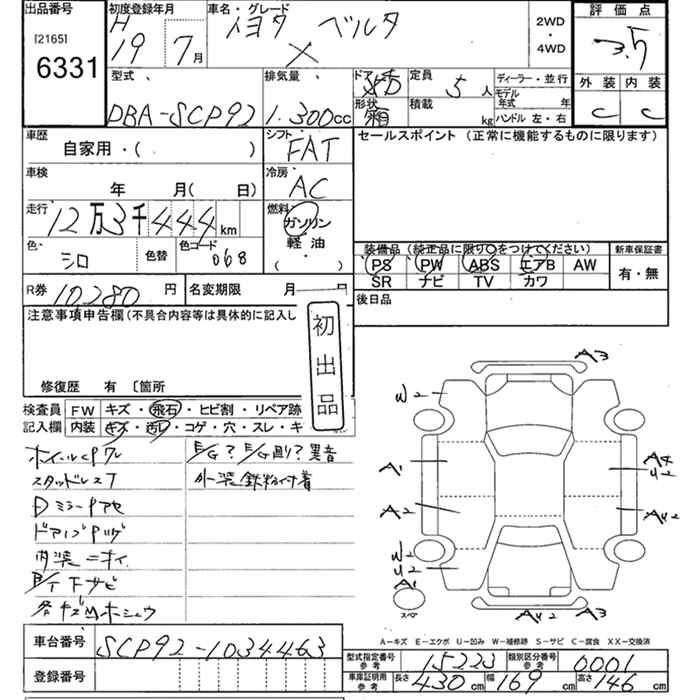 出品番号
[2165]
6331
初度登録年月
H
19 7月
車名・グレード
トヨタ ベルタ
X
2WD
・
4WD
評価点
3.5
外装 内装
C C
型式
DBA-SCP92
排気量
1.300cc
ドア
形状
箱
定員
5人
積載
kg
ディーラー・並行
モデル
年式 年
ハンドル 左・右
車歴
自家用・( )
シフト
FAT
セールスポイント (正常に機能するものに限ります)
車検
年 月( 日)
冷房
AC
走行
12万3千444km
燃料
ガソリン
軽油
( )
色
シロ
色替
色コード
068
装備品 (純正品に限り○をつけてください)
PS PW ABS エアB AW
SR ナビ TV カワ
新車保証書
有・無
R券 10,280 円
名変期限 月
後日品
注意事項申告欄(不具合内容等は具体的に記入し
初出品
修復歴 有 〔箇所
検査員 FW キズ・飛石・ヒビ割・リペア跡
記入欄 内装 キズ・汚レ・コゲ・穴・スレ・キ
ホイルcPワレ
スタッドレスT
Dミラーアセ
内装ニオイ
下サビ
各キズMホシュウ
E/G?E/G廻り?異音
外装鉄粉付着
A3
W2
A1
A4
U2
A2
AU2
W2
U2
A1
スペア
AU2 A3
A-キズ E-エクボ U-凹み W-補修跡 S-サビ C-腐食 XX-交換済
車台番号 SCP92-1034463
登録番号
型式指定番号
参考
15223
類別区分番号
参考
0001
車庫証明用
参考
長さ 430cm 幅 169cm 高さ 146cm